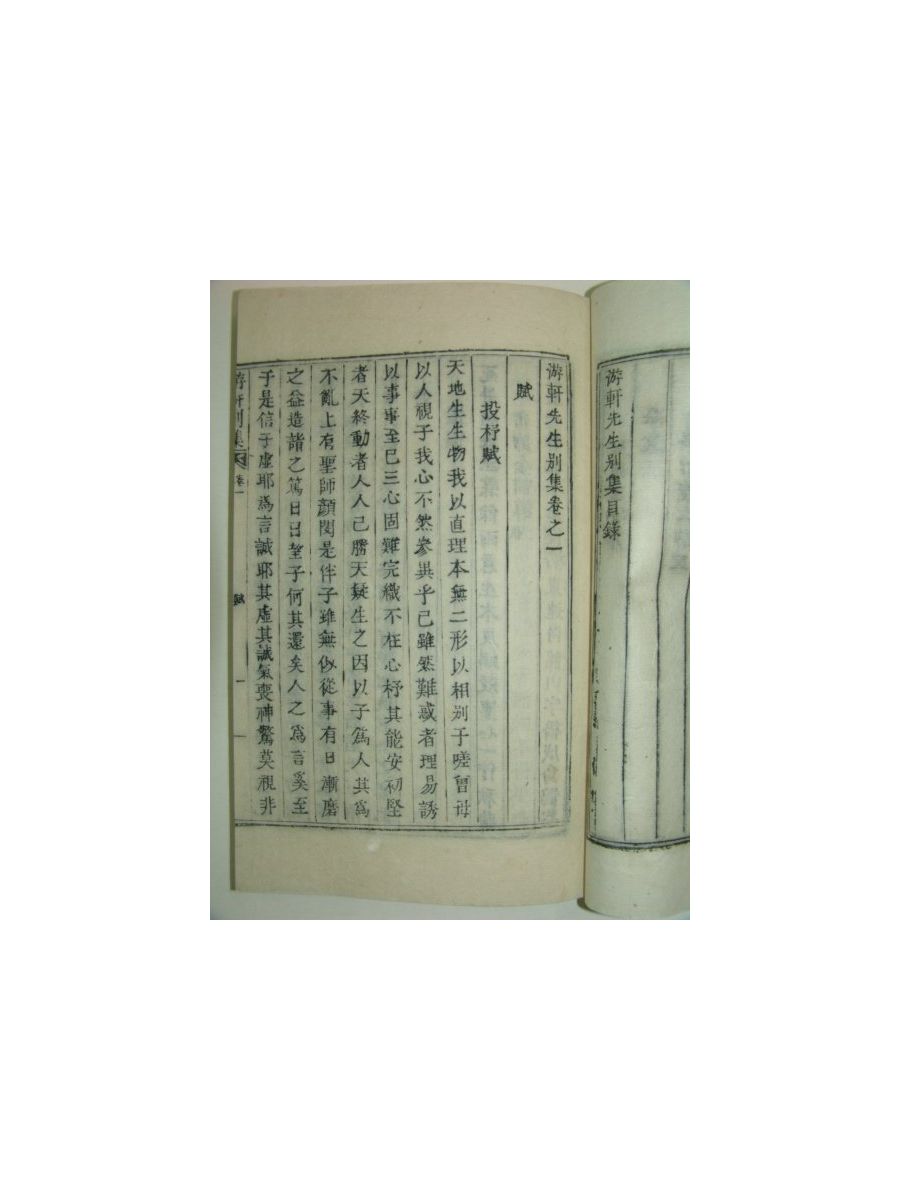 游軒先生別集目錄
游軒先生別集卷之一
賦
投杼賦
天地生生物我以直理本無二形以相別于嗟曾母
以人視子我心不然參異乎己雖然難惑者理易誘
以事事至巳三心固難完織不在心杼其能安初堅
者天終動者人人己勝天疑生之因以子爲人其爲
不亂上有聖師顔閔是伴子雖無似從事有日漸磨
之益造諸之篤日日望子何其還矣人之爲言奚至
于是信于虛耶爲言誠耶其虛其誠氣喪神驚莫視非
游軒別集 卷一 賦 一